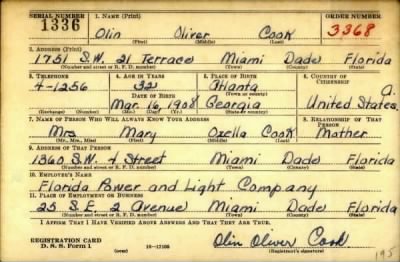 SERIAL NUMBER 1. NAME (Print) ORDER NUMBER
1336 Olin Oliver Cook 3368
(First) (Middle) (Last)
2. ADDRESS (Print)
1751 S.W. 21 Terrace Miami Dade Florida
(Number and street or R. F. D. number) (Town) (County) (State)
3. TELEPHONE 4. AGE IN YEARS 5. PLACE OF BIRTH 6. COUNTRY OF CITIZENSHIP
4-1256 32 Atlanta
DATE OF BIRTH (Town or county)
Mar. 16, 1908 Georgia United States
(Exchange) (Number) (Mo.) (Day) (Yr.) (State or country)
7. NAME OF PERSON WHO WILL ALWAYS KNOW YOUR ADDRESS 8. RELATIONSHIP OF THAT PERSON
Mrs Mary Ozella Cook Mother
(Mr., Mrs., Miss) (First) (Middle) (Last)
9. ADDRESS OF THAT PERSON
1360 S.W. 4 Street Miami Dade Florida
(Number and street or R. F. D. number) (Town) (County) (State)
10. EMPLOYER'S NAME
Florida Power and Light Company
11. PLACE OF EMPLOYMENT OR BUSINESS
25 S.E. 2 Avenue Miami Dade Florida
(Number and street or R. F. D. number) (Town) (County) (State)
I AFFIRM THAT I HAVE VERIFIED ABOVE ANSWERS AND THAT THEY ARE TRUE.
REGISTRATION CARD
D. S. S. Form 1 (over) 16-17105 Olin Oliver Cook
(Registrant's signature)
195